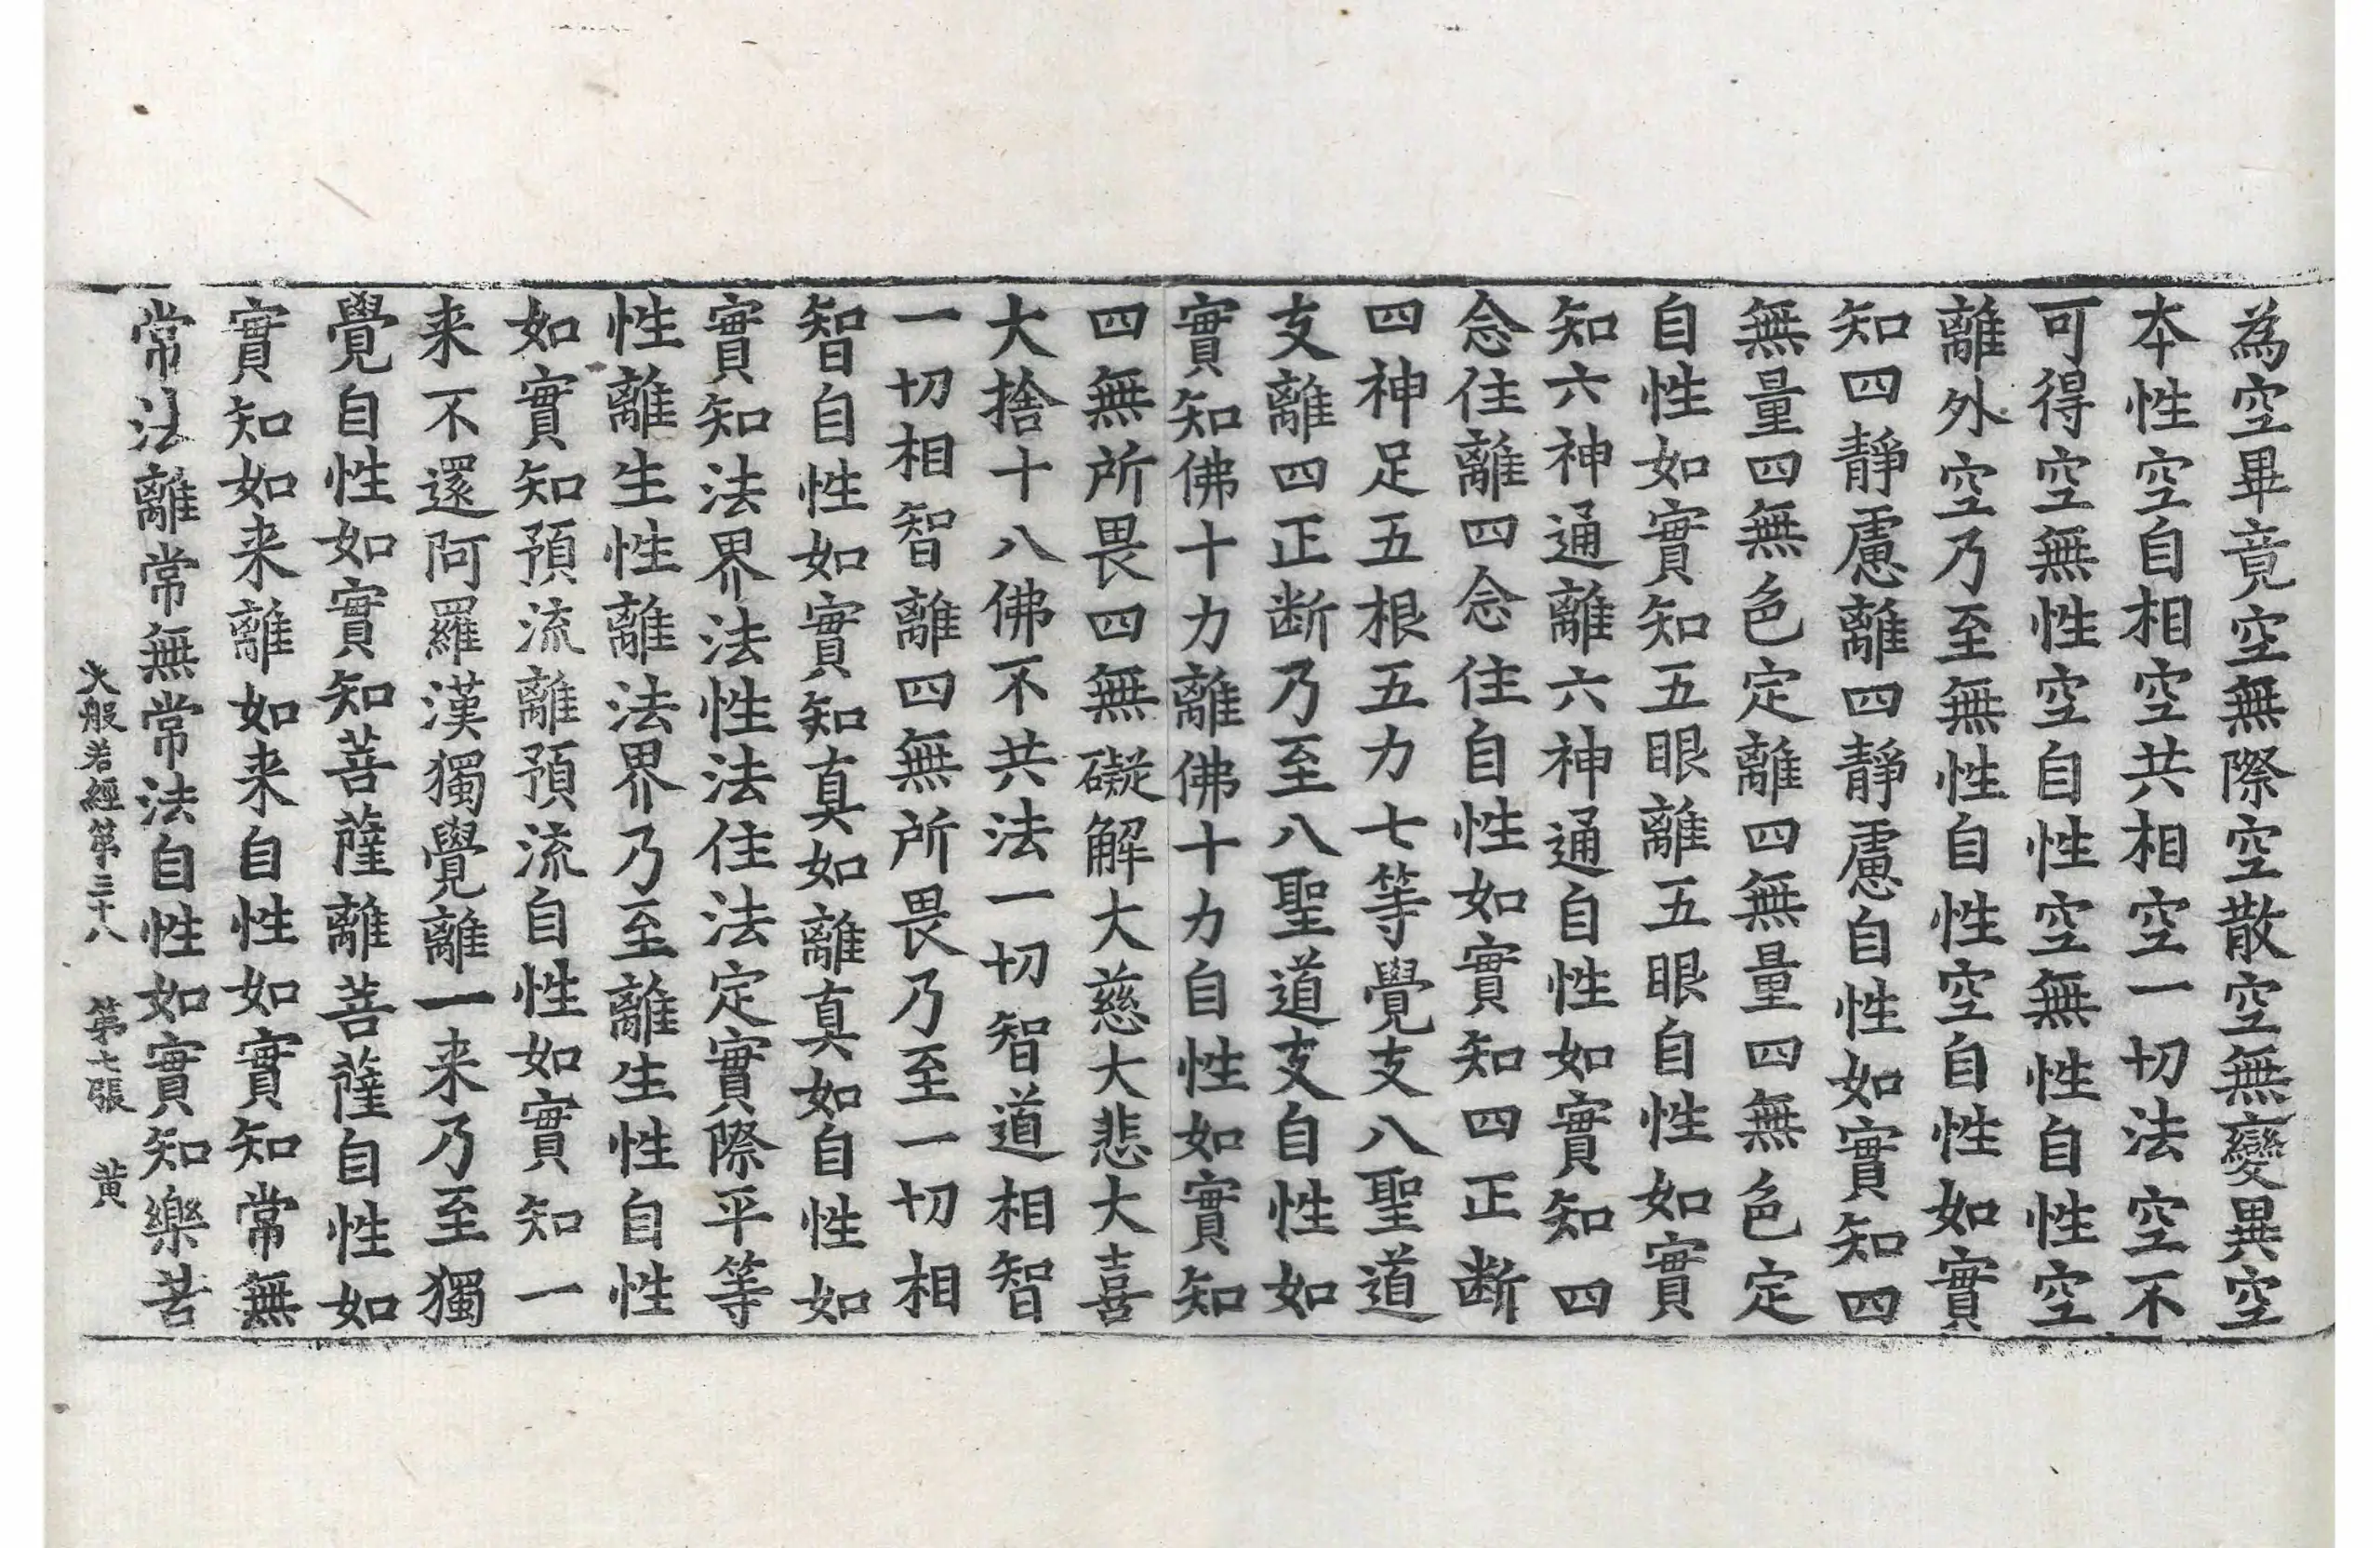 為空畢竟空無際空散空無變異空
本性空自相空共相空一切法空不
可得空無性空自性空無性自性空
離外空乃至無性自性空自性如實
知四靜慮離四靜慮自性如實知四
無量四無色定離四無量四無色定
自性如實知五眼離五眼自性如實
知六神通離六神通自性如實知四
念住離四念住自性如實知四正斷
四神足五根五力七等覺支八聖道
支離四正断乃至八聖道支自性如
實知佛十力離佛十力自性如實知
四無所畏四無礙解大慈大悲大喜
大捨十八佛不共法一切智道相智
一切相智離四無所畏乃至一切相
智自性如實知真如離真如自性如
實知法界法性法住法定實際平等
性離生性離法界乃至離生性自性
如實知預流離預流自性如實知一
来不還阿羅漢獨覺離一来乃至獨
覺自性如實知菩薩離菩薩自性如
實知如来離如来自性如實知常無
常法離常無常法自性如實知樂苦
大般若經第三十八 第七張 黄